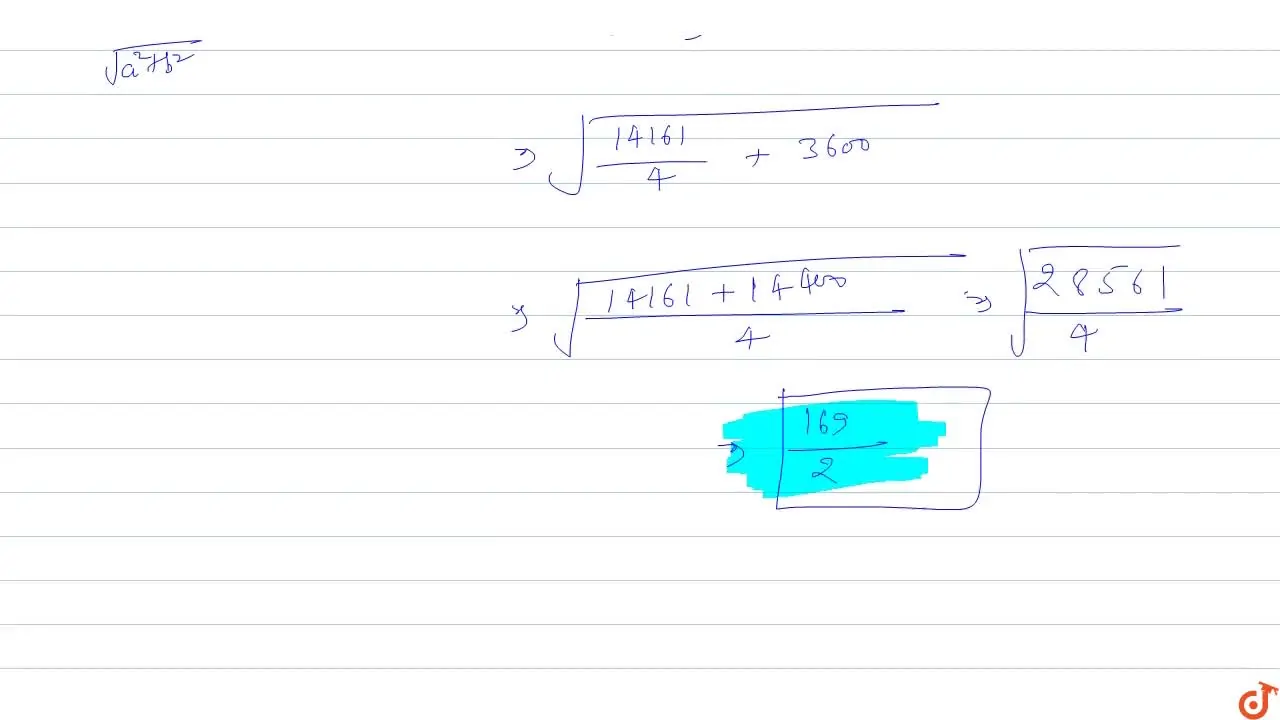 √(a²+b²)
⇒ √(14161/4 + 3600)
⇒ √((14161 + 14400)/4) ⇒ √(28561/4)
⇒ 169/2